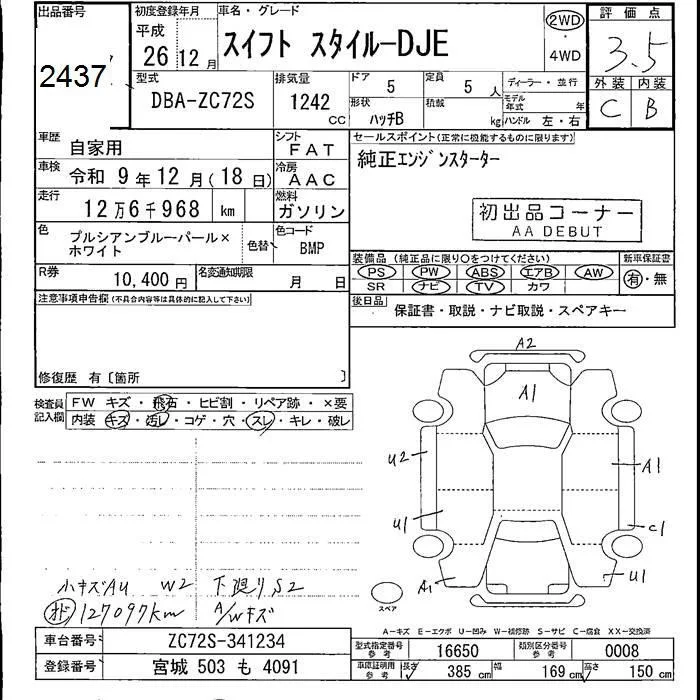 出品番号 初度登録年月 車名・グレード 評価点
2437 平成 26 12月 スイフト スタイルーDJE 2WD・4WD 3.5
型式 排気量 ドア 5 定員 5人 ディーラー・並行 外装 内装
DBA-ZC72S 1242 CC 形状 ハッチB 積載 kg モデル年式 年 ハンドル 左・右 C B
車歴 自家用 シフト FAT セールスポイント(正常に機能するものに限ります)
車検 令和 9年 12月(18日) 冷房 AAC 純正エンジンスターター
走行 12万6千968 km 燃料 ガソリン 初出品コーナー
AA DEBUT
色 プルシアンブルーパール×ホワイト 色替 色コード BMP
装備品(純正品に限り○をつけてください) 新車保証書
PS PW ABS エアB AW 有・無
SR ナビ TV カワ
R券 10,400円 名変通知期限 月 日
後日品 保証書・取説・ナビ取説・スペアキー
注意事項申告欄(不具合内容等は具体的に記入して下さい)
修復歴 有〔箇所 〕
検査員記入欄 FW キズ・飛石・ヒビ割・リペア跡・×要
内装 キズ・汚レ・コゲ・穴・スレ・キレ・破レ
A2
A1
U2
A1
U1
C1
A1
U1
スペア
小キズAU W2 下廻りS2
オド 127097km A/Wキズ
A-キズ E-エクボ U-凹み W-補修跡 S-サビ C-腐食 XX-交換済
車台番号 ZC72S-341234 型式指定番号 参考 16650 類別区分番号 参考 0008
登録番号 宮城 503 も 4091 車庫証明用 参考 長さ 385 cm 幅 169 cm 高さ 150 cm